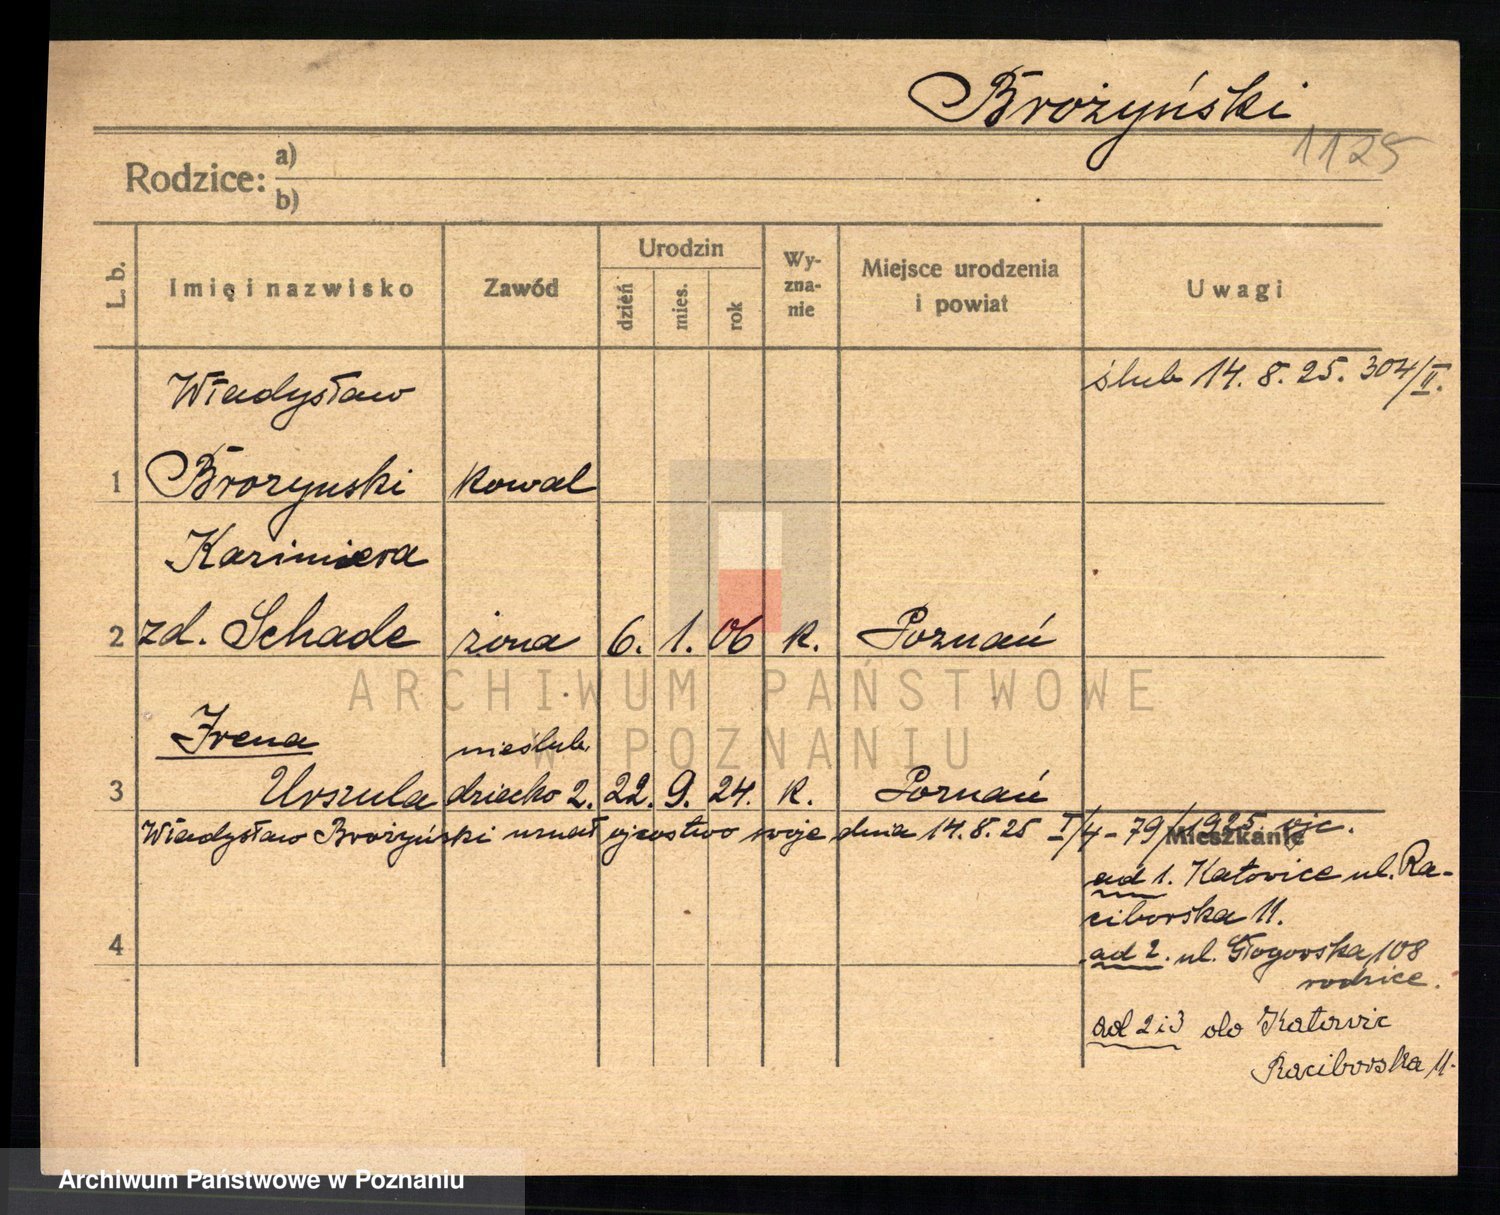 Brożyński
1125
Rodzice: a)
b)
L. b.
Imię i nazwisko
Zawód
Urodzin
dzień
mies.
rok
Wy-
zna-
nie
Miejsce urodzenia
i powiat
Uwagi
Władysław
ślub 14. 8. 25. 304/II.
1 Brozynski kowal
Kazimiera
2 zd. Schade żona 6. 1. 06 k. Poznań
Irena nieślub.
3 Urszula dziecko 2. 22. 9. 24. k. Poznań
Władysław Brożyński uznał ojcostwo swoje dnia 14. 8. 25 I/4-79/1925 ojc.
Mieszkanie
ad 1. Katowice ul. Ra-
ciborska 11.
4
ad 2. ul. Głogowska 108
rodzice.
ad 2 i 3 do Katowic
Raciborska 11.
ARCHIWUM PAŃSTWOWE
W POZNANIU
Archiwum Państwowe w Poznaniu